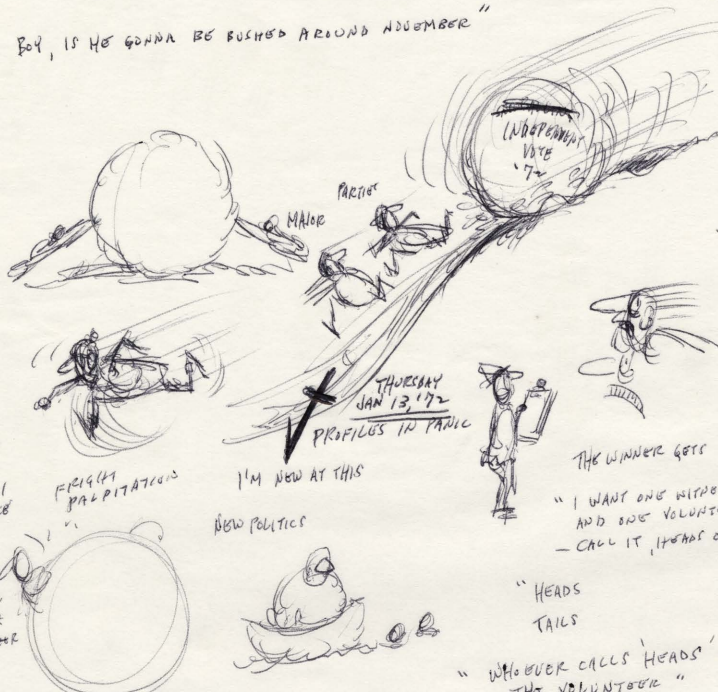 BOY, IS HE GONNA BE BUSHED AROUND NOVEMBER"
INDEPENDENT
VOTE
'72
PARTIES
MAJOR
THURSDAY
JAN 13, '72
PROFILES IN PANIC
I'M NEW AT THIS
FRIGHT
PALPITATION
NEW POLITICS
THE WINNER GETS
" I WANT ONE
AND ONE
– CALL IT, HEADS
" HEADS
TAILS
" WHOEVER CALLS 'HEADS'
THE VOLUNTEER "